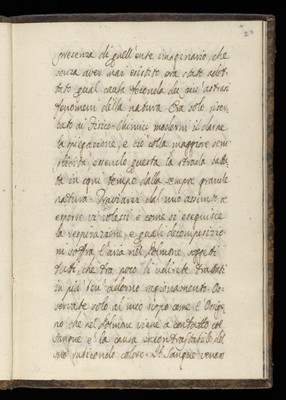 27
presenza di quell'ente imaginario, che
senza aver mai esistito era stato adot-
tato qual causa de' più astrusi
fenomeni della natura. Era solo riser-
bato ai Fisico-Chimici moderni il darne
la spiegazione, e ciò colla maggiore sem-
plicità essendo questa la strada bat-
tuta in ogni tempo dalla sempre grande
natura. dal mio assunto
esporre vi volessi e come si eseguisce
la respirazione, e quale decomposizio-
ne soffra l'aria nel Polmone, soggetti
tutti, che tra poco li udirete trattati
in più adorno ragionamento. Os-
servate solo al mio scopo come l'Ossige-
no che nel Polmone viene a contatto col
Sangue è la causa incontrastabile del
suo rubicondo colore. Il Sangue venoso